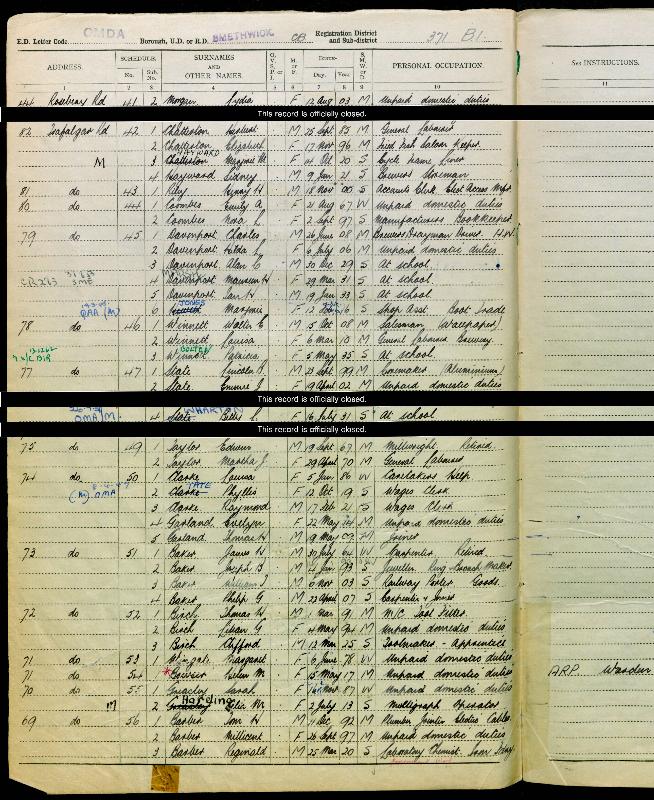 E.D. Letter Code OMDA Borough, U.D. or R.D. SMETHWICK CB Registration District and Sub-district 371 B.1
ADDRESS. SCHEDULE. No. Sub. No. SURNAMES AND OTHER NAMES. O. V. S. P. or I. M. or F. BIRTH— Day. Year. S. M. W. or D. PERSONAL OCCUPATION. See INSTRUCTIONS.
1 2 3 4 5 6 7 8 9 10 11
44 Rosebery Rd 41 2 Morgan Lydia F 12 Aug 03 M Unpaid domestic duties
This record is officially closed.
82 Trafalgar Rd 42 1 Chatterton M 25 Sept 85 M General Labourer
2 Chatterton Elizabeth F 17 Nov 96 M Fried Fish Saloon Keeper
HAYWARD
M 3 Chatterton Marjorie M F 4 Oct 20 S Cycle Frame Liner
4 Hayward Sidney M 9 Jun 21 S Brewers Storeman
81 do 43 1 Riley Henry H M 18 Nov 00 S Accounts Clerk Elect Access Mfr
80 do 44 1 Coombes Emily A F 21 Aug 67 W Unpaid domestic duties
2 Coombes Nora L F 2 Sept 97 S Manufacturers Book Keeper
79 do 45 1 Davenport Charles M 26 June 08 M Brewers Drayman Driver H.W.
2 Davenport Hilda F 6 July 06 M Unpaid domestic duties
3 Davenport Alan C M 30 Dec 29 S At school
CR283 SME 4 Davenport Maureen H F 29 Mar 31 S At school
5 Davenport Ian H M 19 Jan 33 S At school
JONES
OAA (M) 6 Marjorie F 12 16 S Shop Asst Boot Trade
78 do 46 1 Winnett Walter E M 5 Oct 08 M Salesman (Wallpaper)
2 Winnett Louisa F 6 Mar 10 M General Labourer Brewery
BOLTON
3 Winnett Patricia F 5 May 35 S At school
77 do 47 1 Slate Lincoln H M 23 Sept 99 M (Aluminium)
2 Slate Emmie J F 19 April 02 M Unpaid domestic duties
This record is officially closed.
WHARTON
OMA (M) 4 Slate Betty L F 16 July 31 S At school
This record is officially closed.
75 do 49 1 Taylor Edwin M 19 Sept 67 M Millwright Retired
2 Taylor Martha J F 29 April 70 M General Labourer
74 do 50 1 Clarke Louisa F 5 Jan 86 W Caretakers Help
TATE
(M) OMA 2 Clarke Phyllis F 12 Oct 19 S Wages Clerk
3 Clarke Raymond M 17 Feb 21 S Wages Clerk
4 Garland Evelyn F 22 May 14 M Unpaid domestic duties
5 Garland Thomas H M 19 May 07 M Joiner
73 do 51 1 Baker James H M 30 July 64 W Carpenter Retired
2 Baker Joseph B M 4 Jan 93 S Jeweller Ring & Brooch Maker
3 Baker William J M 6 Nov 03 S Railway Porter Goods
4 Baker Philip G M 23 April 07 S Carpenter & Joiner
72 do 52 1 Birch Thomas H M 1 Mar 91 M M/C Tool Fitter
2 Birch Lilian G F 4 May 94 M Unpaid domestic duties
3 Birch Clifford M 12 Mar 25 S Toolmaker - Apprentice
71 do 53 1 Margaret F 6 June 76 W Unpaid domestic duties ARP Warden
71 do 54 Helen M F 15 May 17 M Unpaid domestic duties
70 do 55 1 Greasley Sarah F 16 Nov 87 W Unpaid domestic duties
Harding
M 2 Greasley Elsie M F 2 July 13 S Multigraph Operator
69 do 56 1 Barber Tom H M 7 Dec 92 M Plumber Jointer Electric Cables
2 Barber Millicent F 26 Sept 97 M Unpaid domestic duties
3 Barber Reginald M 25 Mar 20 S Laboratory Chemist